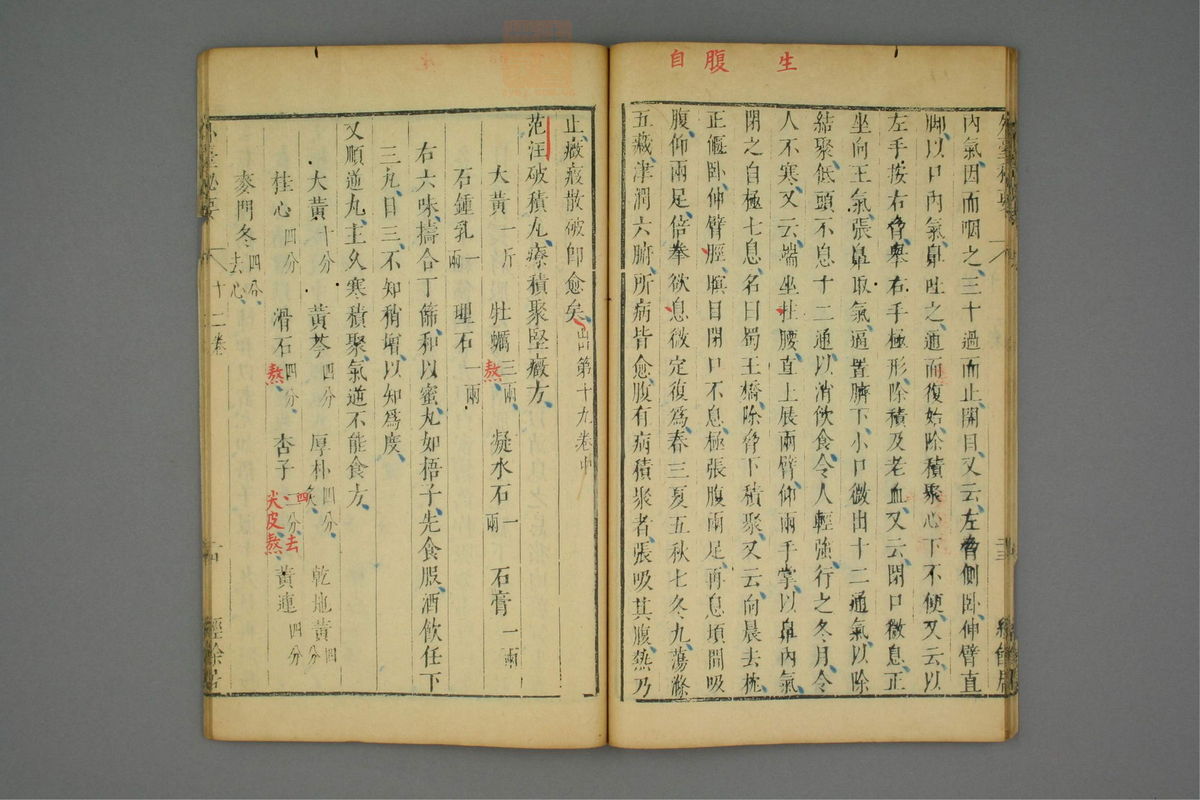 自 腹 生
內氣因而咽之三十過而止開目又云左脅側卧伸臂直
脚以口內氣鼻吐之通而復始除積聚心下不便又云以
左手按右脅舉右手極形除積及老血又云閉口微息正
坐向王氣張鼻取氣逼置臍下小口微出十二通氣以除
結聚低頭不息十二通以消飲食令人輕強行之冬月令
人不寒又云端坐柱腰直上展兩臂仰兩手掌以鼻內氣
閉之自極七息名曰蜀王橋除脅下積聚又云向晨去枕
正偃卧伸臂脛瞑目閉口不息極張腹兩足再息頃間吸
腹仰兩足倍拳欲息微定復爲春三夏五秋七冬九蕩滌
五藏津潤六腑所病皆愈腹有病積聚者張吸其腹熱乃
止癥瘕散破卽愈矣 出第十九卷中
范汪破積丸療積聚堅癥方
大黃一斤 牡蠣三兩熬 凝水石一兩 石膏一兩
石鍾乳一兩 理石一兩
右六味擣合下篩和以蜜丸如梧子先食服酒飲任下
三丸日三不知稍增以知爲度
又順逆丸主久寒積聚氣逆不能食方
大黃十分 黃芩四分 厚朴四分炙 乾地黃四分
桂心四分 滑石四分熬 杏子四二分去尖皮熬 黃連四分
麥門冬四分去心
外臺秘要 十二卷 十四 經餘居